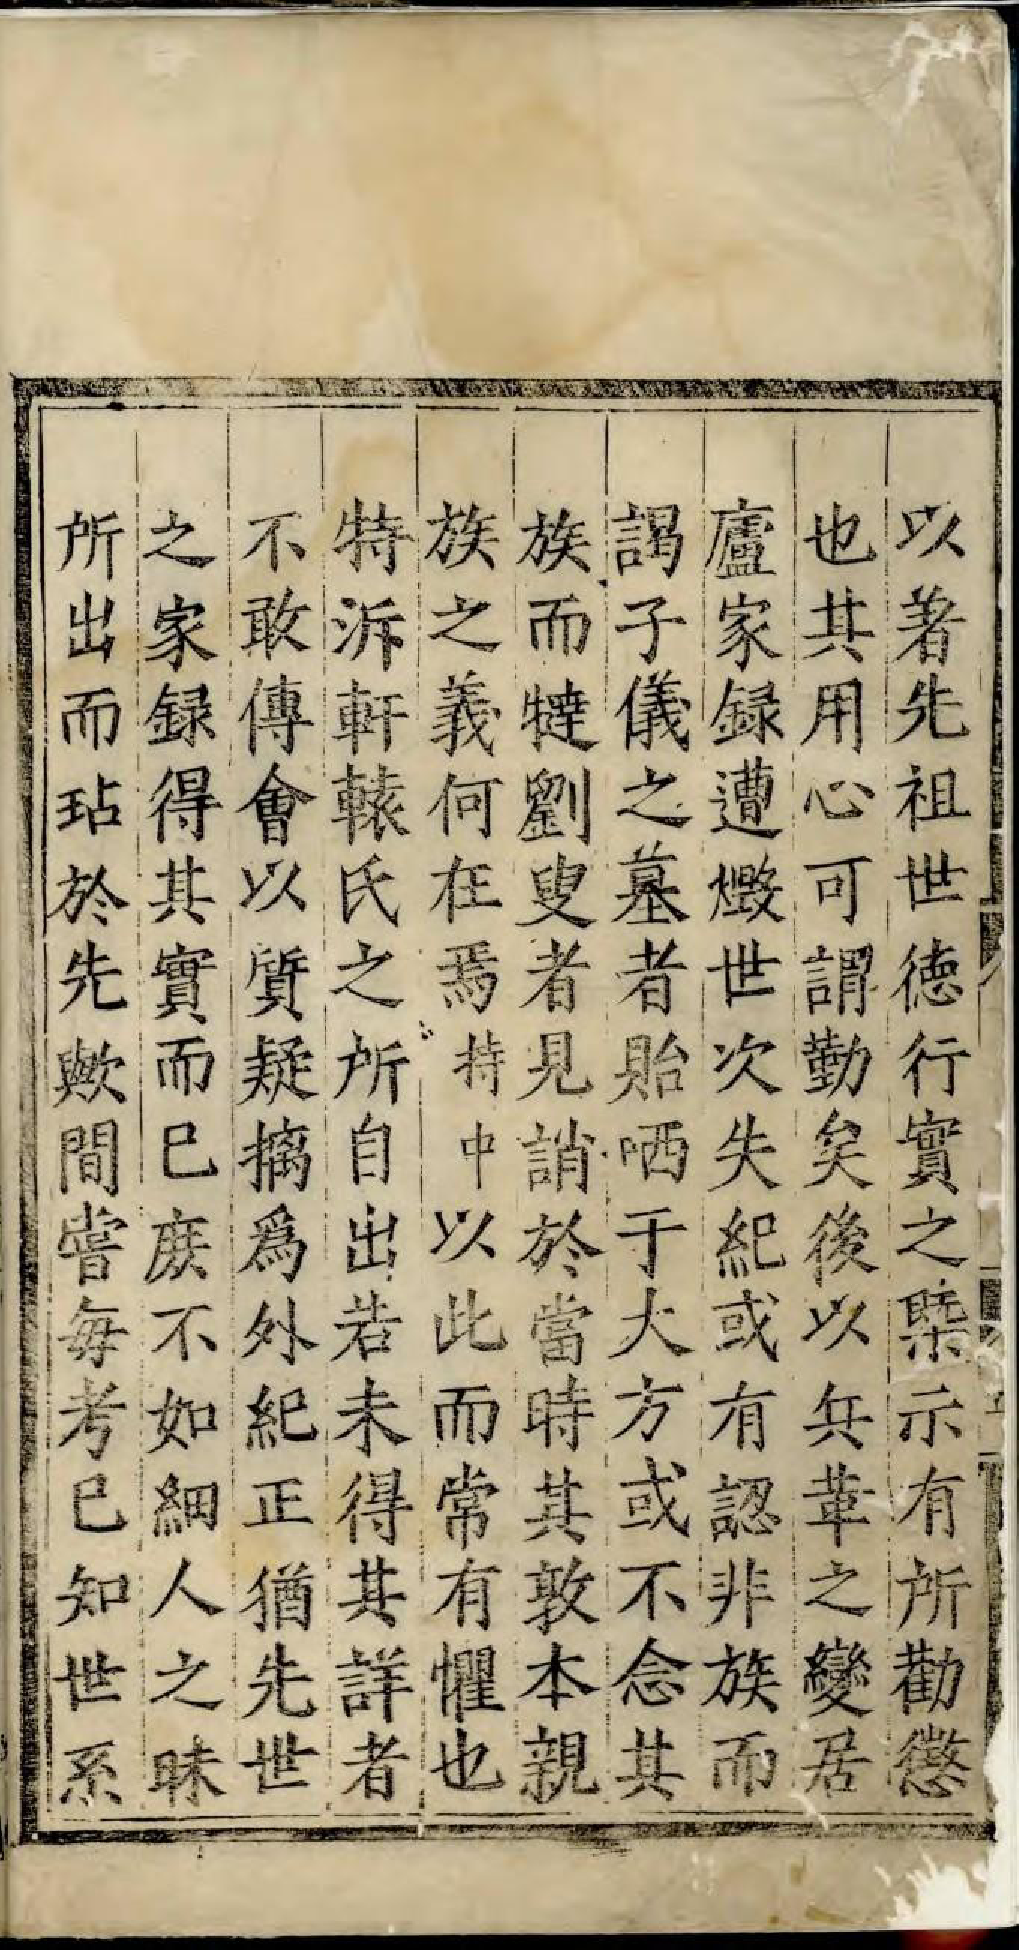 以著先祖世德行實之槩示有所勸懲
也其用心可謂勤矣後以兵革之變居
廬家録遭燬世次失紀或有認非族而
謁子儀之墓者貽哂于大方或不念其
族而撻劉叟者見誚於當時其敦本親
族之義何在焉持中以此而常有懼也
特泝軒轅氏之所自出若未得其詳者
不敢傅會以質疑摛爲外紀正猶先世
之家録得其實而已庻不如細人之昧
所出而玷於先歟間嘗每考已知世系